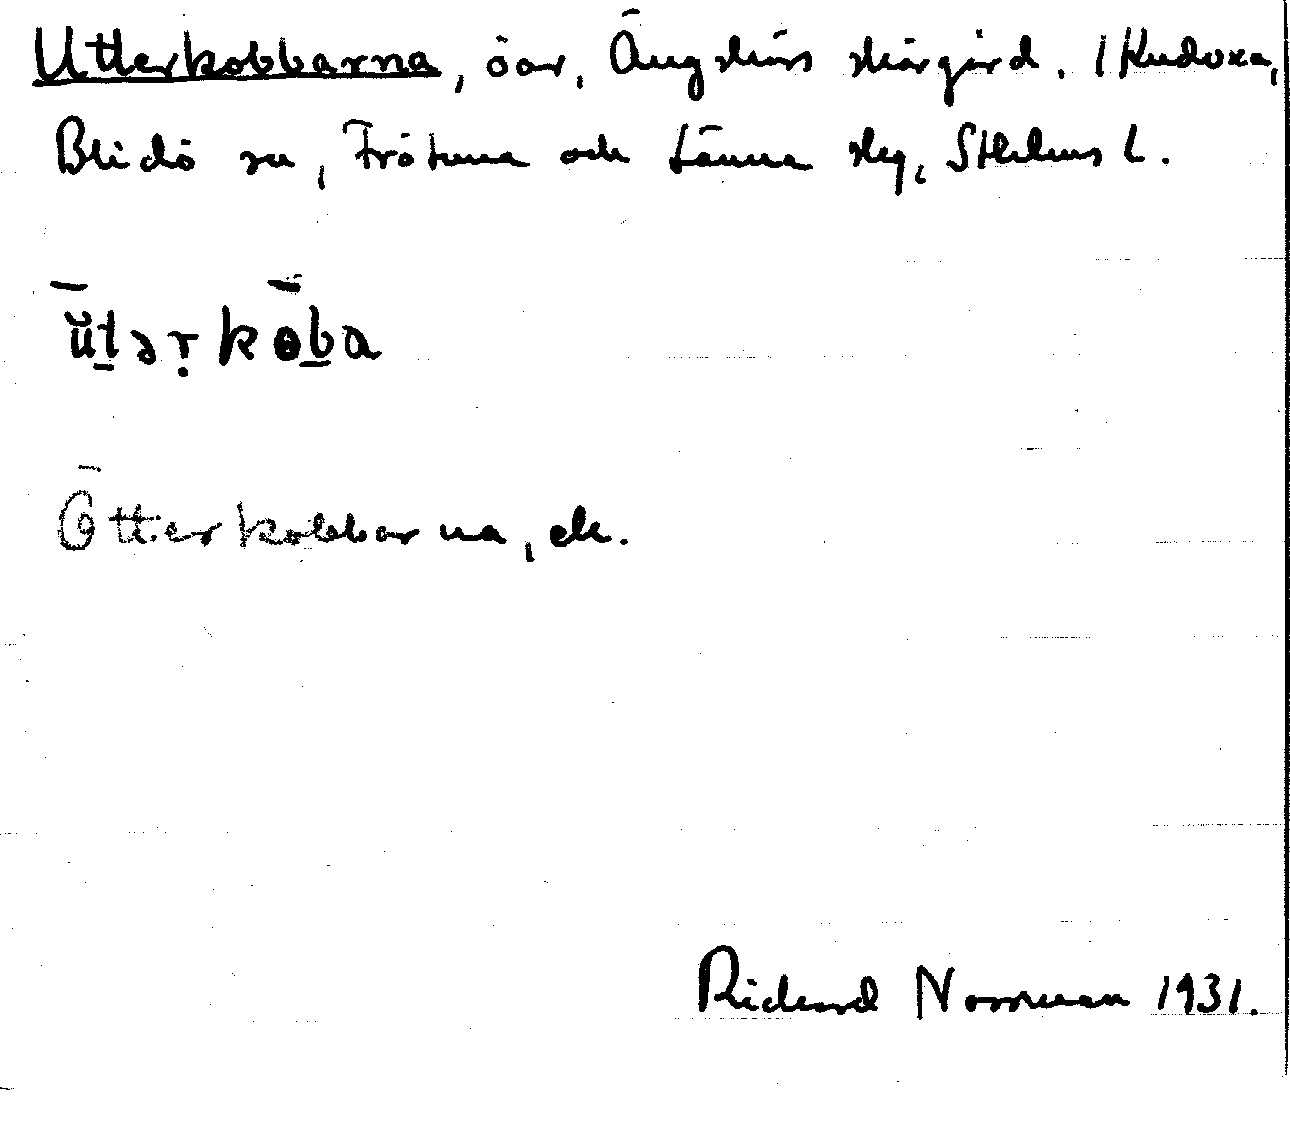 Utterkobbarna, öar, Ängskärs skärgård. I Kudoxa,
Blidö sn, Frötuna och Länna skg, Sthlms L.
ŭtərkoba
Otterkobbarna, ek.
Richard Norrman 1931.